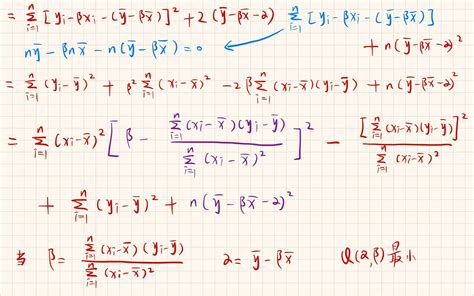 = \sum_{i=1}^{n} [y_i - βx_i - (ȳ - βx̄)]^2 + 2(ȳ - βx̄ - α) \sum_{i=1}^{n} [y_i - βx_i - (ȳ - βx̄)]
nȳ - βnx̄ - n(ȳ - βx̄) = 0 + n(ȳ - βx̄ - α)^2
= \sum_{i=1}^{n} (y_i - ȳ)^2 + β^2 \sum_{i=1}^{n} (x_i - x̄)^2 - 2β \sum_{i=1}^{n} (x_i - x̄)(y_i - ȳ) + n(ȳ - βx̄ - α)^2
= \sum_{i=1}^{n} (x_i - x̄)^2 [β - \frac{\sum_{i=1}^{n} (x_i - x̄)(y_i - ȳ)}{\sum_{i=1}^{n} (x_i - x̄)^2}]^2 - \frac{[\sum_{i=1}^{n} (x_i - x̄)(y_i - ȳ)]^2}{\sum_{i=1}^{n} (x_i - x̄)^2}
+ \sum_{i=1}^{n} (y_i - ȳ)^2 + n(ȳ - βx̄ - α)^2
当 β = \frac{\sum_{i=1}^{n} (x_i - x̄)(y_i - ȳ)}{\sum_{i=1}^{n} (x_i - x̄)^2} α = ȳ - βx̄ Q(α, β) 最小